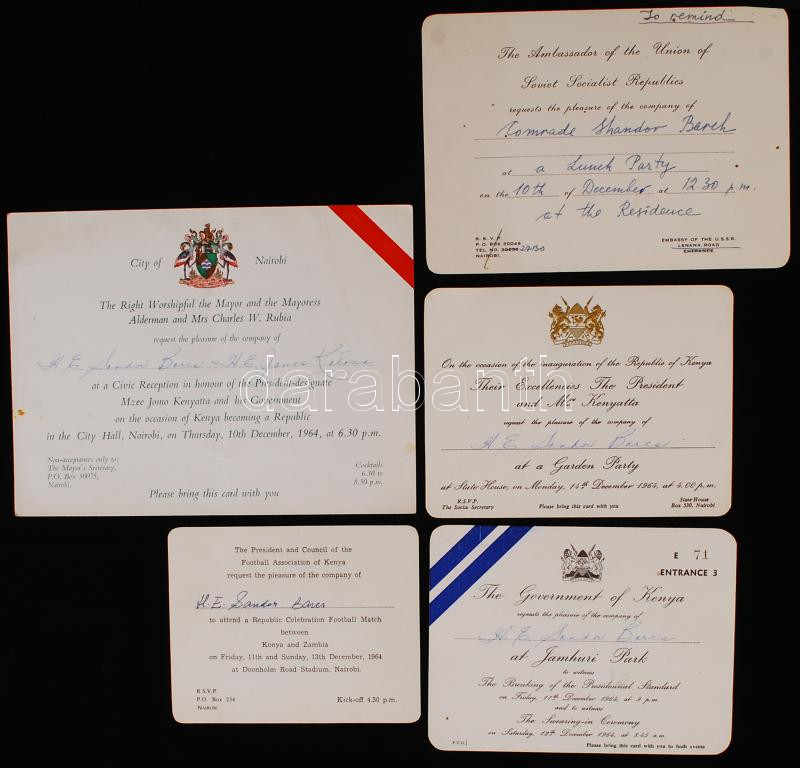 To remind
The Ambassador of the Union of
Soviet Socialist Republics
requests the pleasure of the company of
Comrade Shandor Barch
at a Lunch Party
on the 10th of December at 12.30 p.m.
at the Residence
R.S.V.P.
P.O. BOX 30049
TEL. NO. 27130
NAIROBI.
EMBASSY OF THE U.S.S.R.
LENANA ROAD
ENTRANCE
City of Nairobi
The Right Worshipful the Mayor and the Mayoress
Alderman and Mrs Charles W. Rubia
request the pleasure of the company of
H E Sandor Barcs & H E Janos Katona
at a Civic Reception in honour of the President-designate
Mzee Jomo Kenyatta and his Government
on the occasion of Kenya becoming a Republic
in the City Hall, Nairobi, on Thursday, 10th December, 1964, at 6.30 p.m.
Non-acceptances only to:
The Mayor's Secretary,
P.O. Box 30075,
Nairobi.
Cocktails
6.30 to
8.30 p.m.
Please bring this card with you
On the occasion of the inauguration of the Republic of Kenya
Their Excellencies The President
and Mama Kenyatta
request the pleasure of the company of
H E Sandor Barcs
at a Garden Party
at State House, on Monday, 14th December 1964, at 4.00 p.m.
R.S.V.P.
The Social Secretary
Please bring this card with you
State House
Box 530, Nairobi
The President and Council of the
Football Association of Kenya
request the pleasure of the company of
H.E. Sandor Barcs
to attend a Republic Celebration Football Match
between
Kenya and Zambia
on Friday, 11th and Sunday, 13th December, 1964
at Doonholm Road Stadium, Nairobi.
R.S.V.P.
P.O. Box 234
NAIROBI
Kick-off 4.30 p.m.
E 71
ENTRANCE 3
The Government of Kenya
requests the pleasure of the company of
H E Sandor Barcs
at Jamhuri Park
to witness
The Breaking of the Presidential Standard
on Friday, 11th December 1964, at 9 p.m.
and to witness
The Swearing-in Ceremony
on Saturday, 12th December 1964, at 8.45 a.m.
P.T.O.
Please bring this card with you to both events
darabanth.com